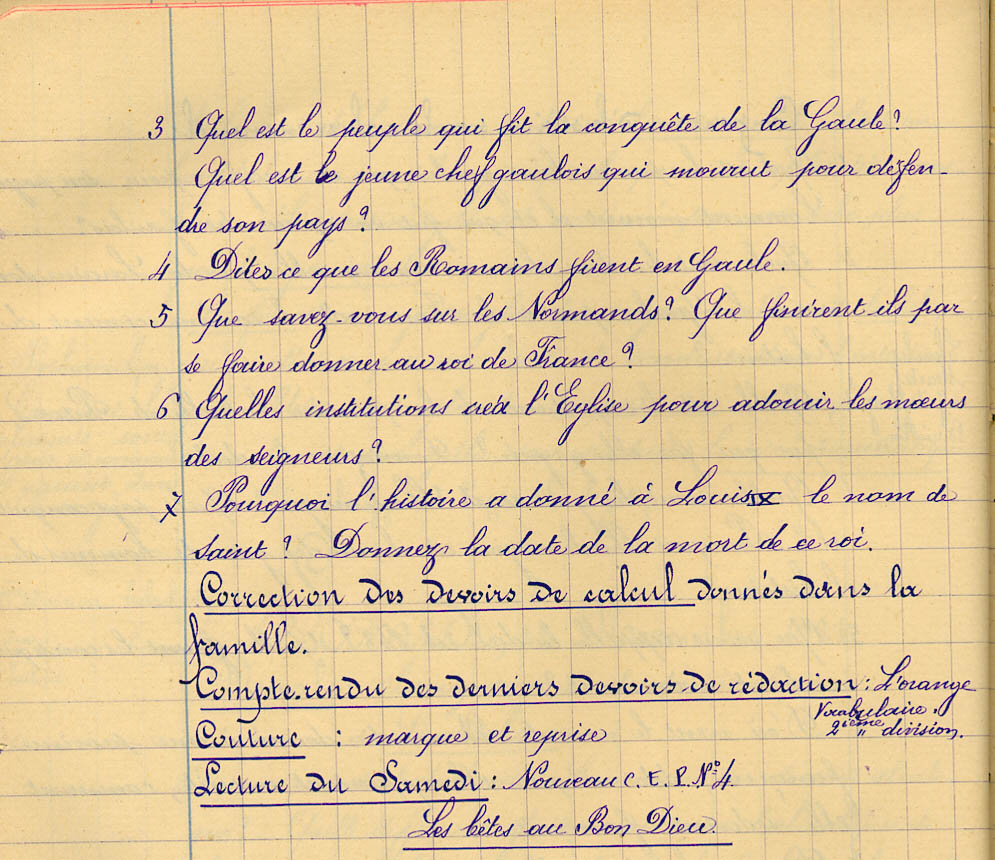 3 Quel est le peuple qui fit la conquête de la Gaule?
Quel est le jeune chef gaulois qui mourut pour défen-
dre son pays?
4 Dites ce que les Romains firent en Gaule.
5 Que savez-vous sur les Normands? Que finirent-ils par
se faire donner au roi de France?
6 Quelles institutions créa l'Eglise pour adoucir les mœurs
des seigneurs?
7 Pourquoi l'histoire a donné à Louis IX le nom de
saint? Donnez la date de la mort de ce roi.
Correction des devoirs de calcul donnés dans la
famille.
Compte-rendu des derniers devoirs de rédaction: L'orange
Vocabulaire.
2ième " division.
Couture : marque et reprise
Lecture du Samedi: Nouveau C. E. P. N° 4.
Les bêtes au Bon Dieu.